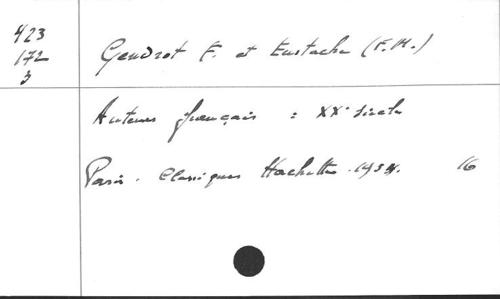 423
172
3
Gendrot F. et Eustache (F.M.)
Auteurs français : XXe siècle
Paris. Classiques Hachette. 1954. 16